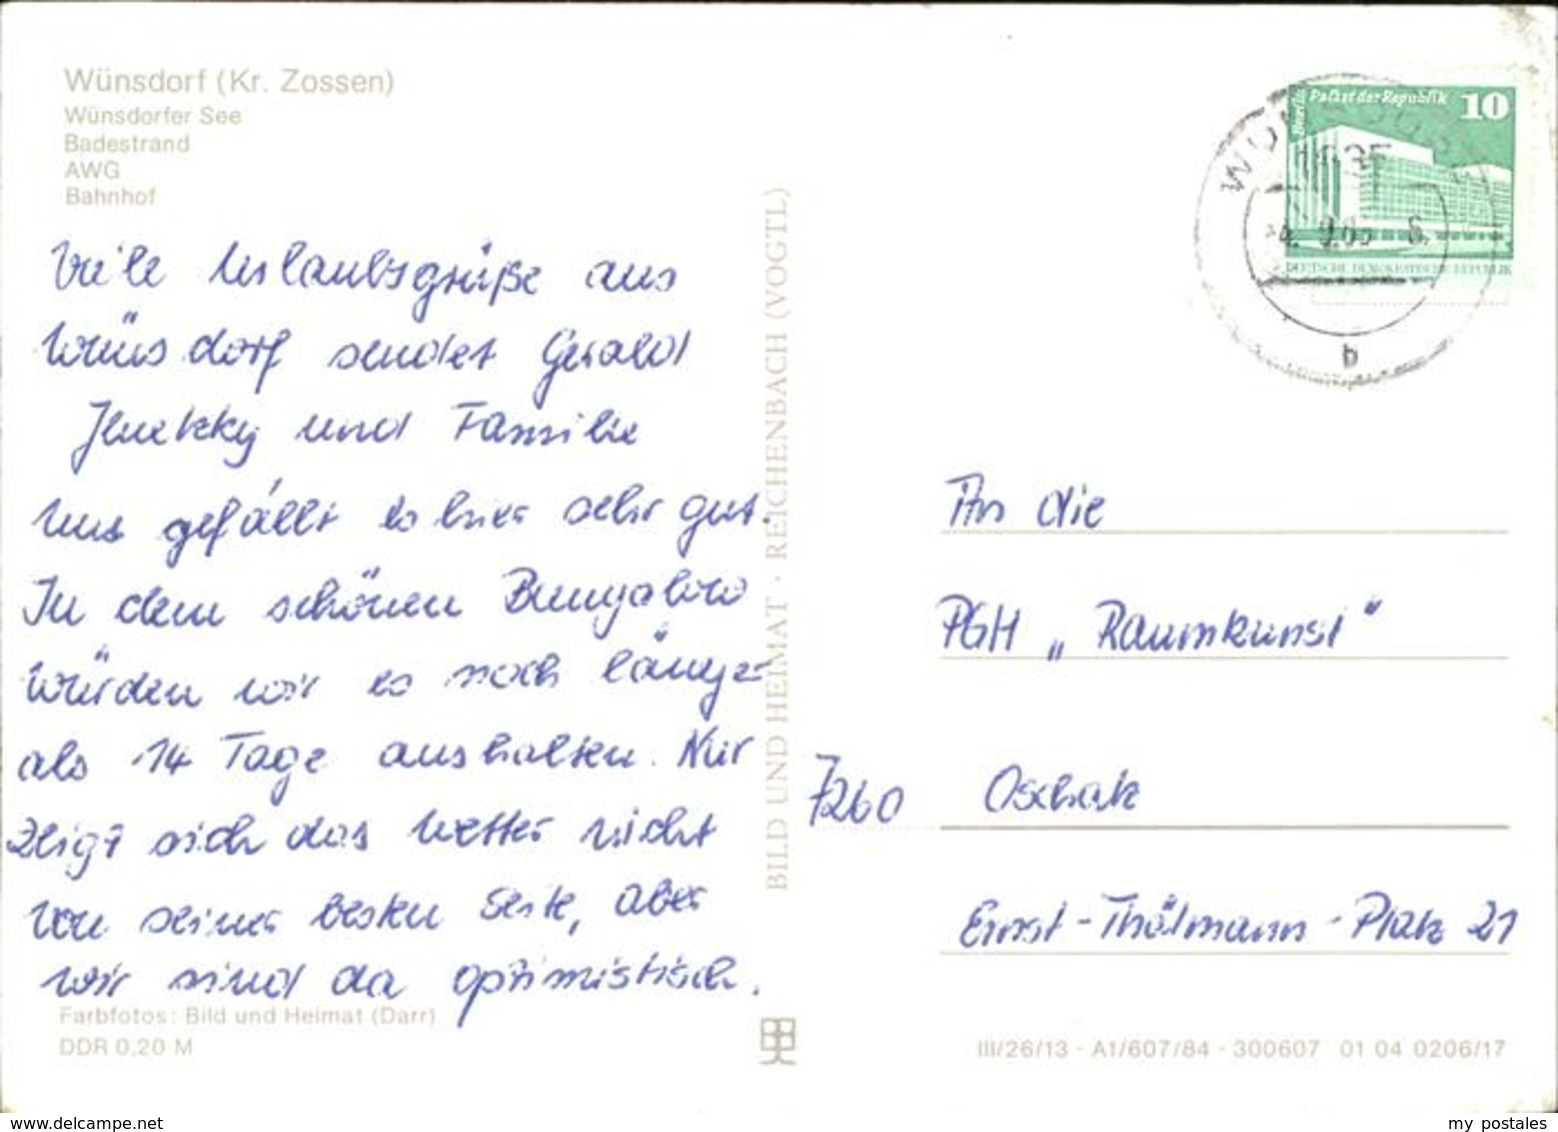 Wünsdorf (Kr. Zossen)
Wünsdorfer See
Badestrand
AWG
Bahnhof
Viele Urlaubsgrüße aus
Wünsdorf sendet Gerald
und Familie
Uns gefällt es hier sehr gut.
In dem schönen Bungalow
würden wir es noch länger
als 14 Tage aushalten. Nur
zeigt sich das Wetter nicht
von seiner besten Seite, aber
wir sind da optimistisch.
Farbfotos: Bild und Heimat (Darr)
DDR 0,20 M
BILD UND HEIMAT · REICHENBACH (VOGTL)
Berlin Palast der Republik 10
DEUTSCHE DEMOKRATISCHE REPUBLIK
1635
b
An die
PGH „Raumkunst"
7260 Oschatz
Ernst-Thälmann-Platz 21
III/26/13 · A1/607/84 · 300607 01 04 0206/17
www.delcampe.net
my postales